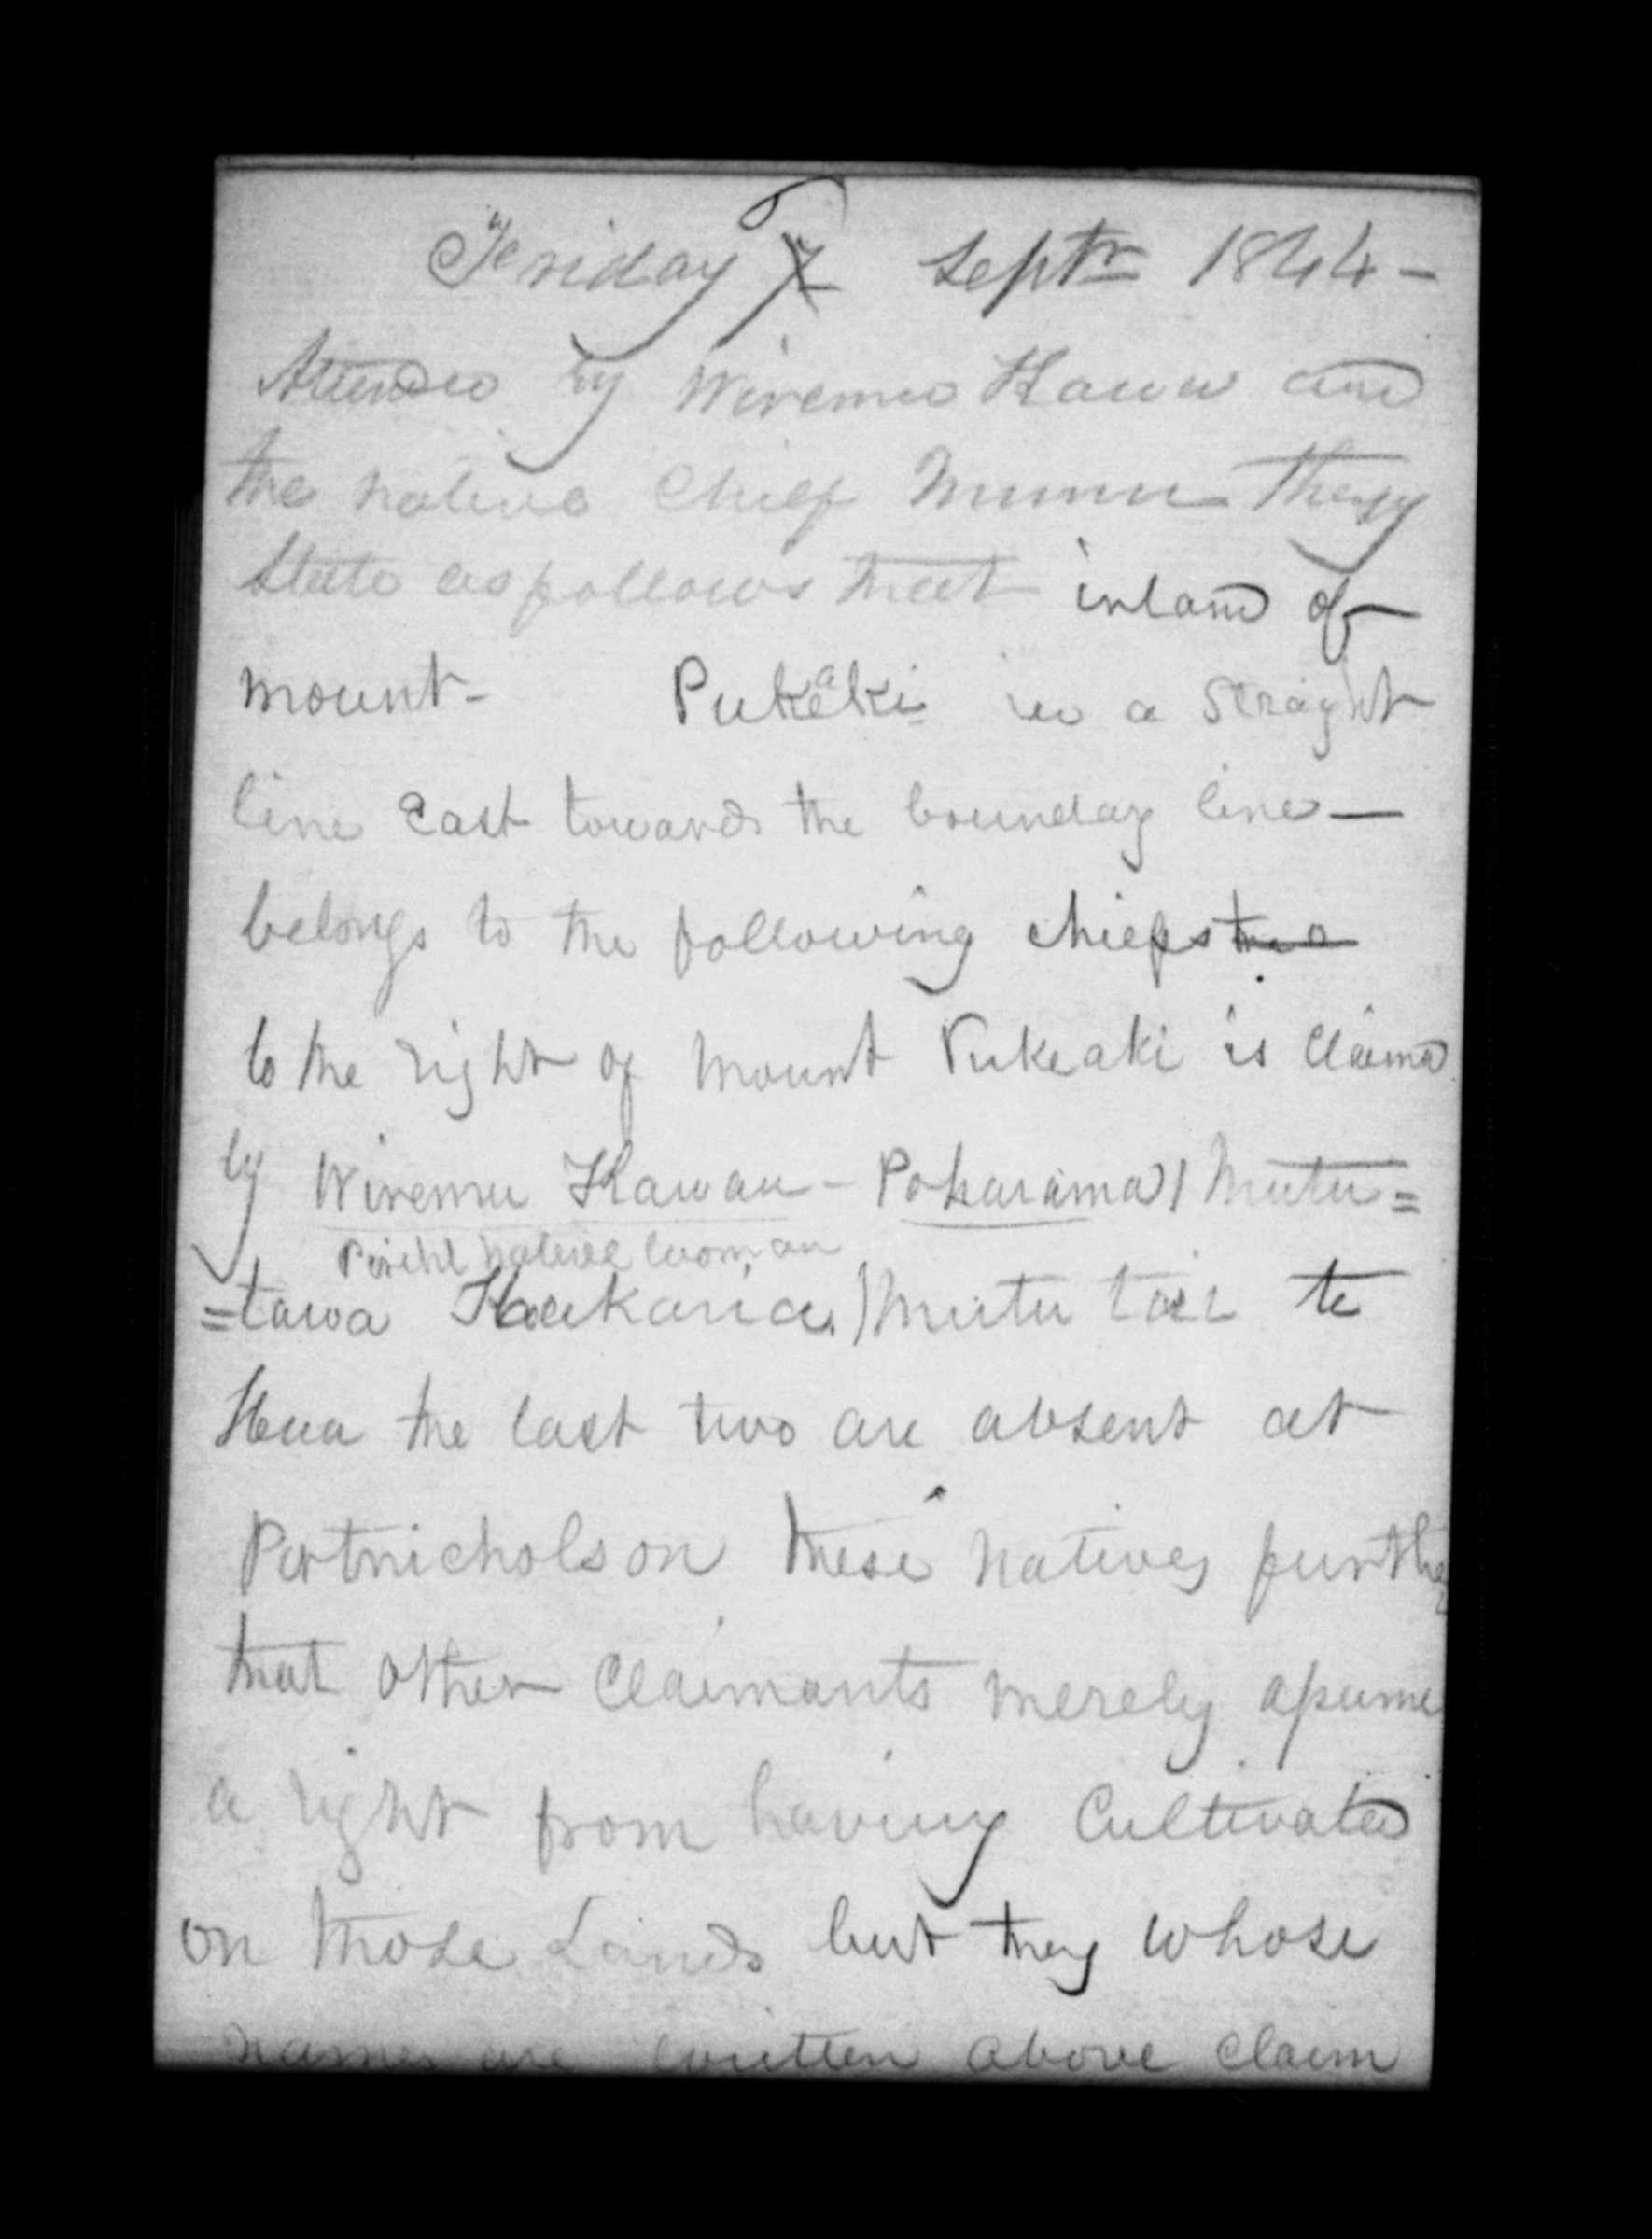 Friday 6 Septr 1844 -
Attended by Wiremu Kawau and
the native Chief Mumu They
State as follows that inland of
mount - Pukeaki in a Straight
line East towards the bounday line —
belongs to the following chiefs
to the right of Mount Pukeaki is Claimd
by Wiremu Kawau - Poharama / Mutu=
Pirihi native woman
=tawa Haakaria) Mutu te
Hua the last two are absent at
Portnicholson these natives further
that other Claimants merely assume
a right from having Cultivated
on those Lands but they whose
names are written above claim